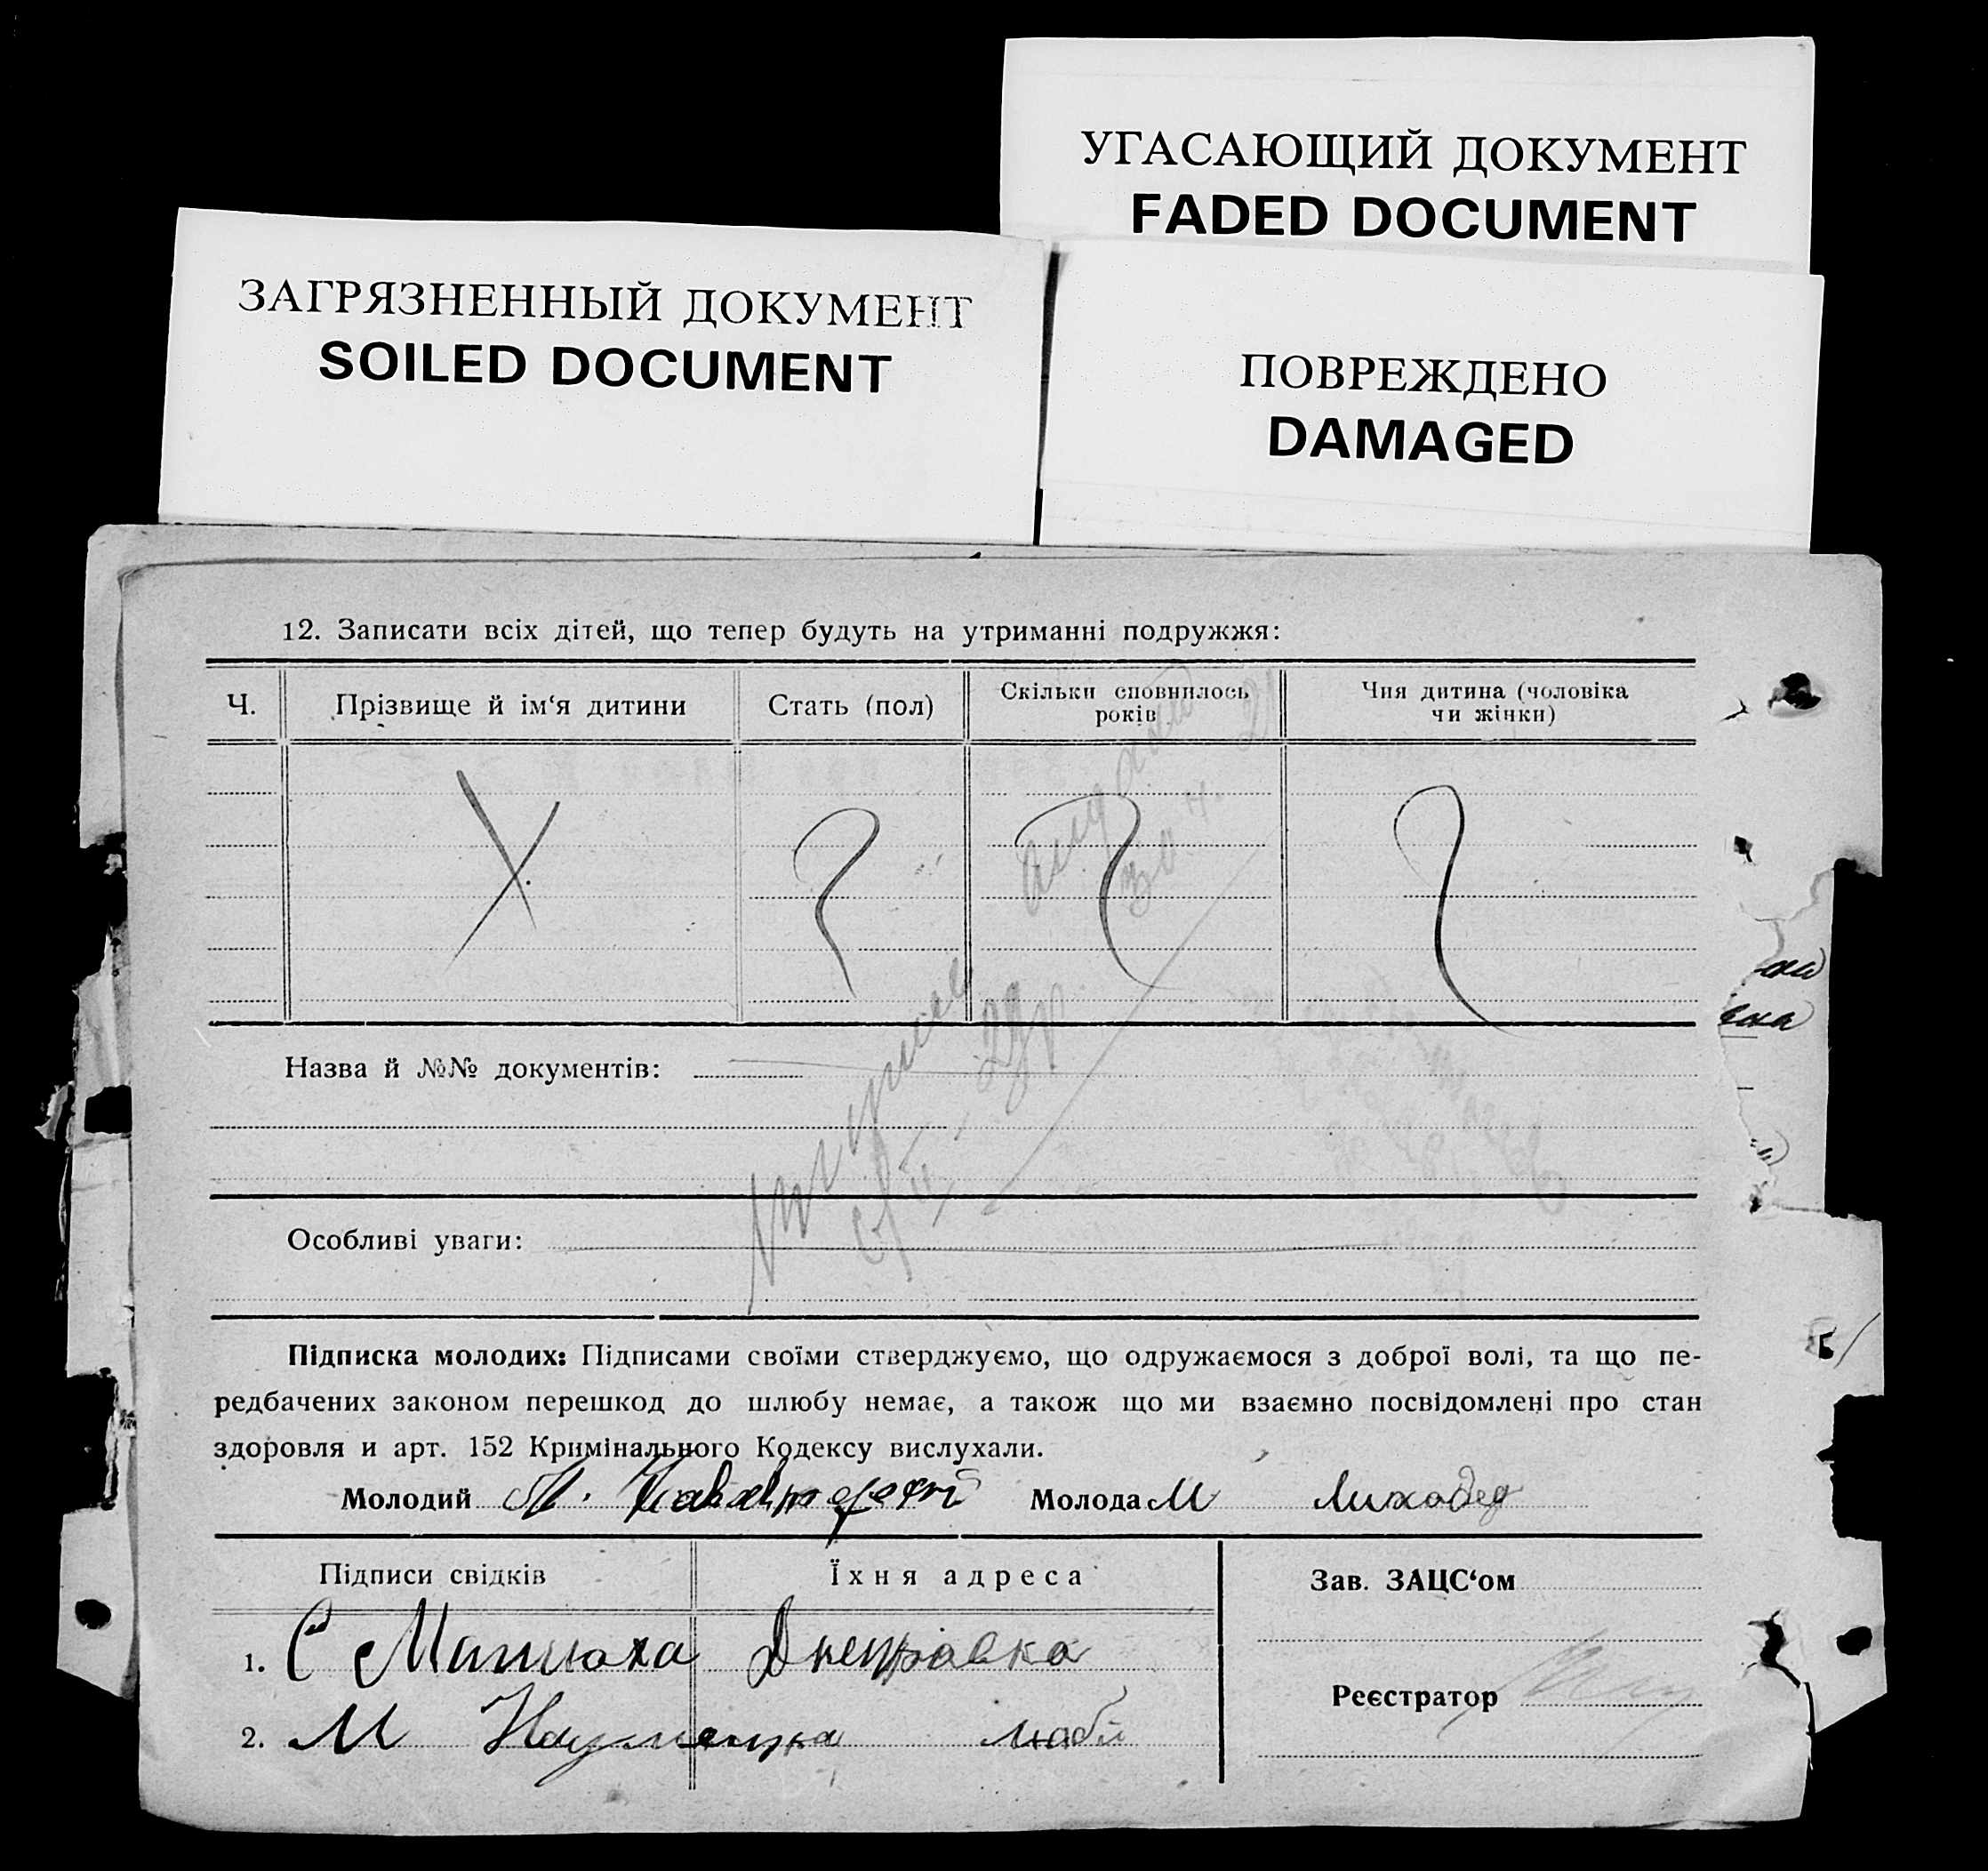 УГАСАЮЩИЙ ДОКУМЕНТ
FADED DOCUMENT
ЗАГРЯЗНЕННЫЙ ДОКУМЕНТ
SOILED DOCUMENT
ПОВРЕЖДЕНО
DAMAGED
12. Записати всіх дітей, що тепер будуть на утриманні подружжя:
Ч.
Прізвище й ім‘я дитини
Стать (пол)
Скільки сповнилось
років
Чия дитина (чоловіка
чи жінки)
Назва й №№ документів:
Особливі уваги:
Підписка молодих: Підписами своїми стверджуємо, що одружаємося з доброї волі, та що пе-
редбачених законом перешкод до шлюбу немає, а також що ми взаємно посвідомлені про стан
здоровля и арт. 152 Кримінального Кодексу вислухали.
Молодий Молода М Лиходед
Підписи свідків
Їхня адреса
Зав. ЗАЦС‘ом
1. С Матюха
2. М Науменка
Реєстратор